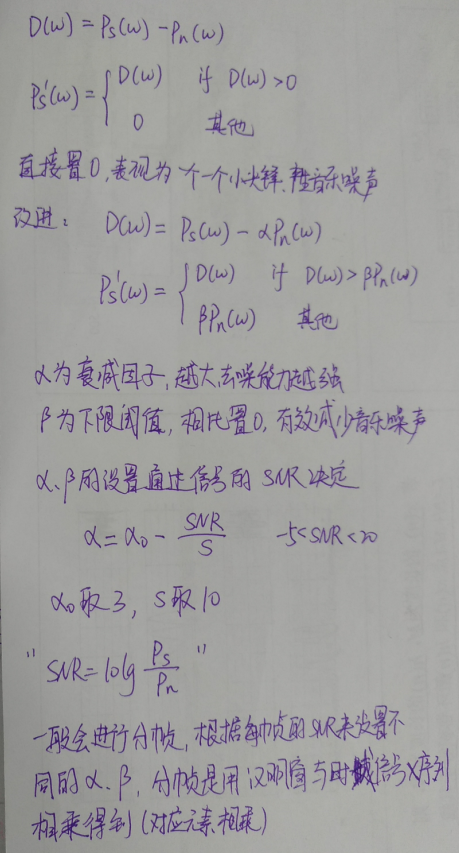 D(ω) = Ps(ω) - Pn(ω)
Ps'(ω) = { D(ω) if D(ω) > 0
0 其他
直接置0, 表现为一个一个小尖锋, 音乐噪声
改进: D(ω) = Ps(ω) - αPn(ω)
Ps'(ω) = { D(ω) if D(ω) > βPn(ω)
βPn(ω) 其他
α为衰减因子, 越大去噪能力越强
β为下限阈值, 相比置0, 有效减少音乐噪声
α、β的设置通过信号的SNR决定
α = α0 - SNR/S -5<SNR<20
α0取3, S取10
" SNR = 10lg Ps/Pn "
一般会进行分帧, 根据每帧的SNR来设置不
同的α、β, 分帧是用汉明窗与时域信号x序列
相乘得到(对应元素相乘)